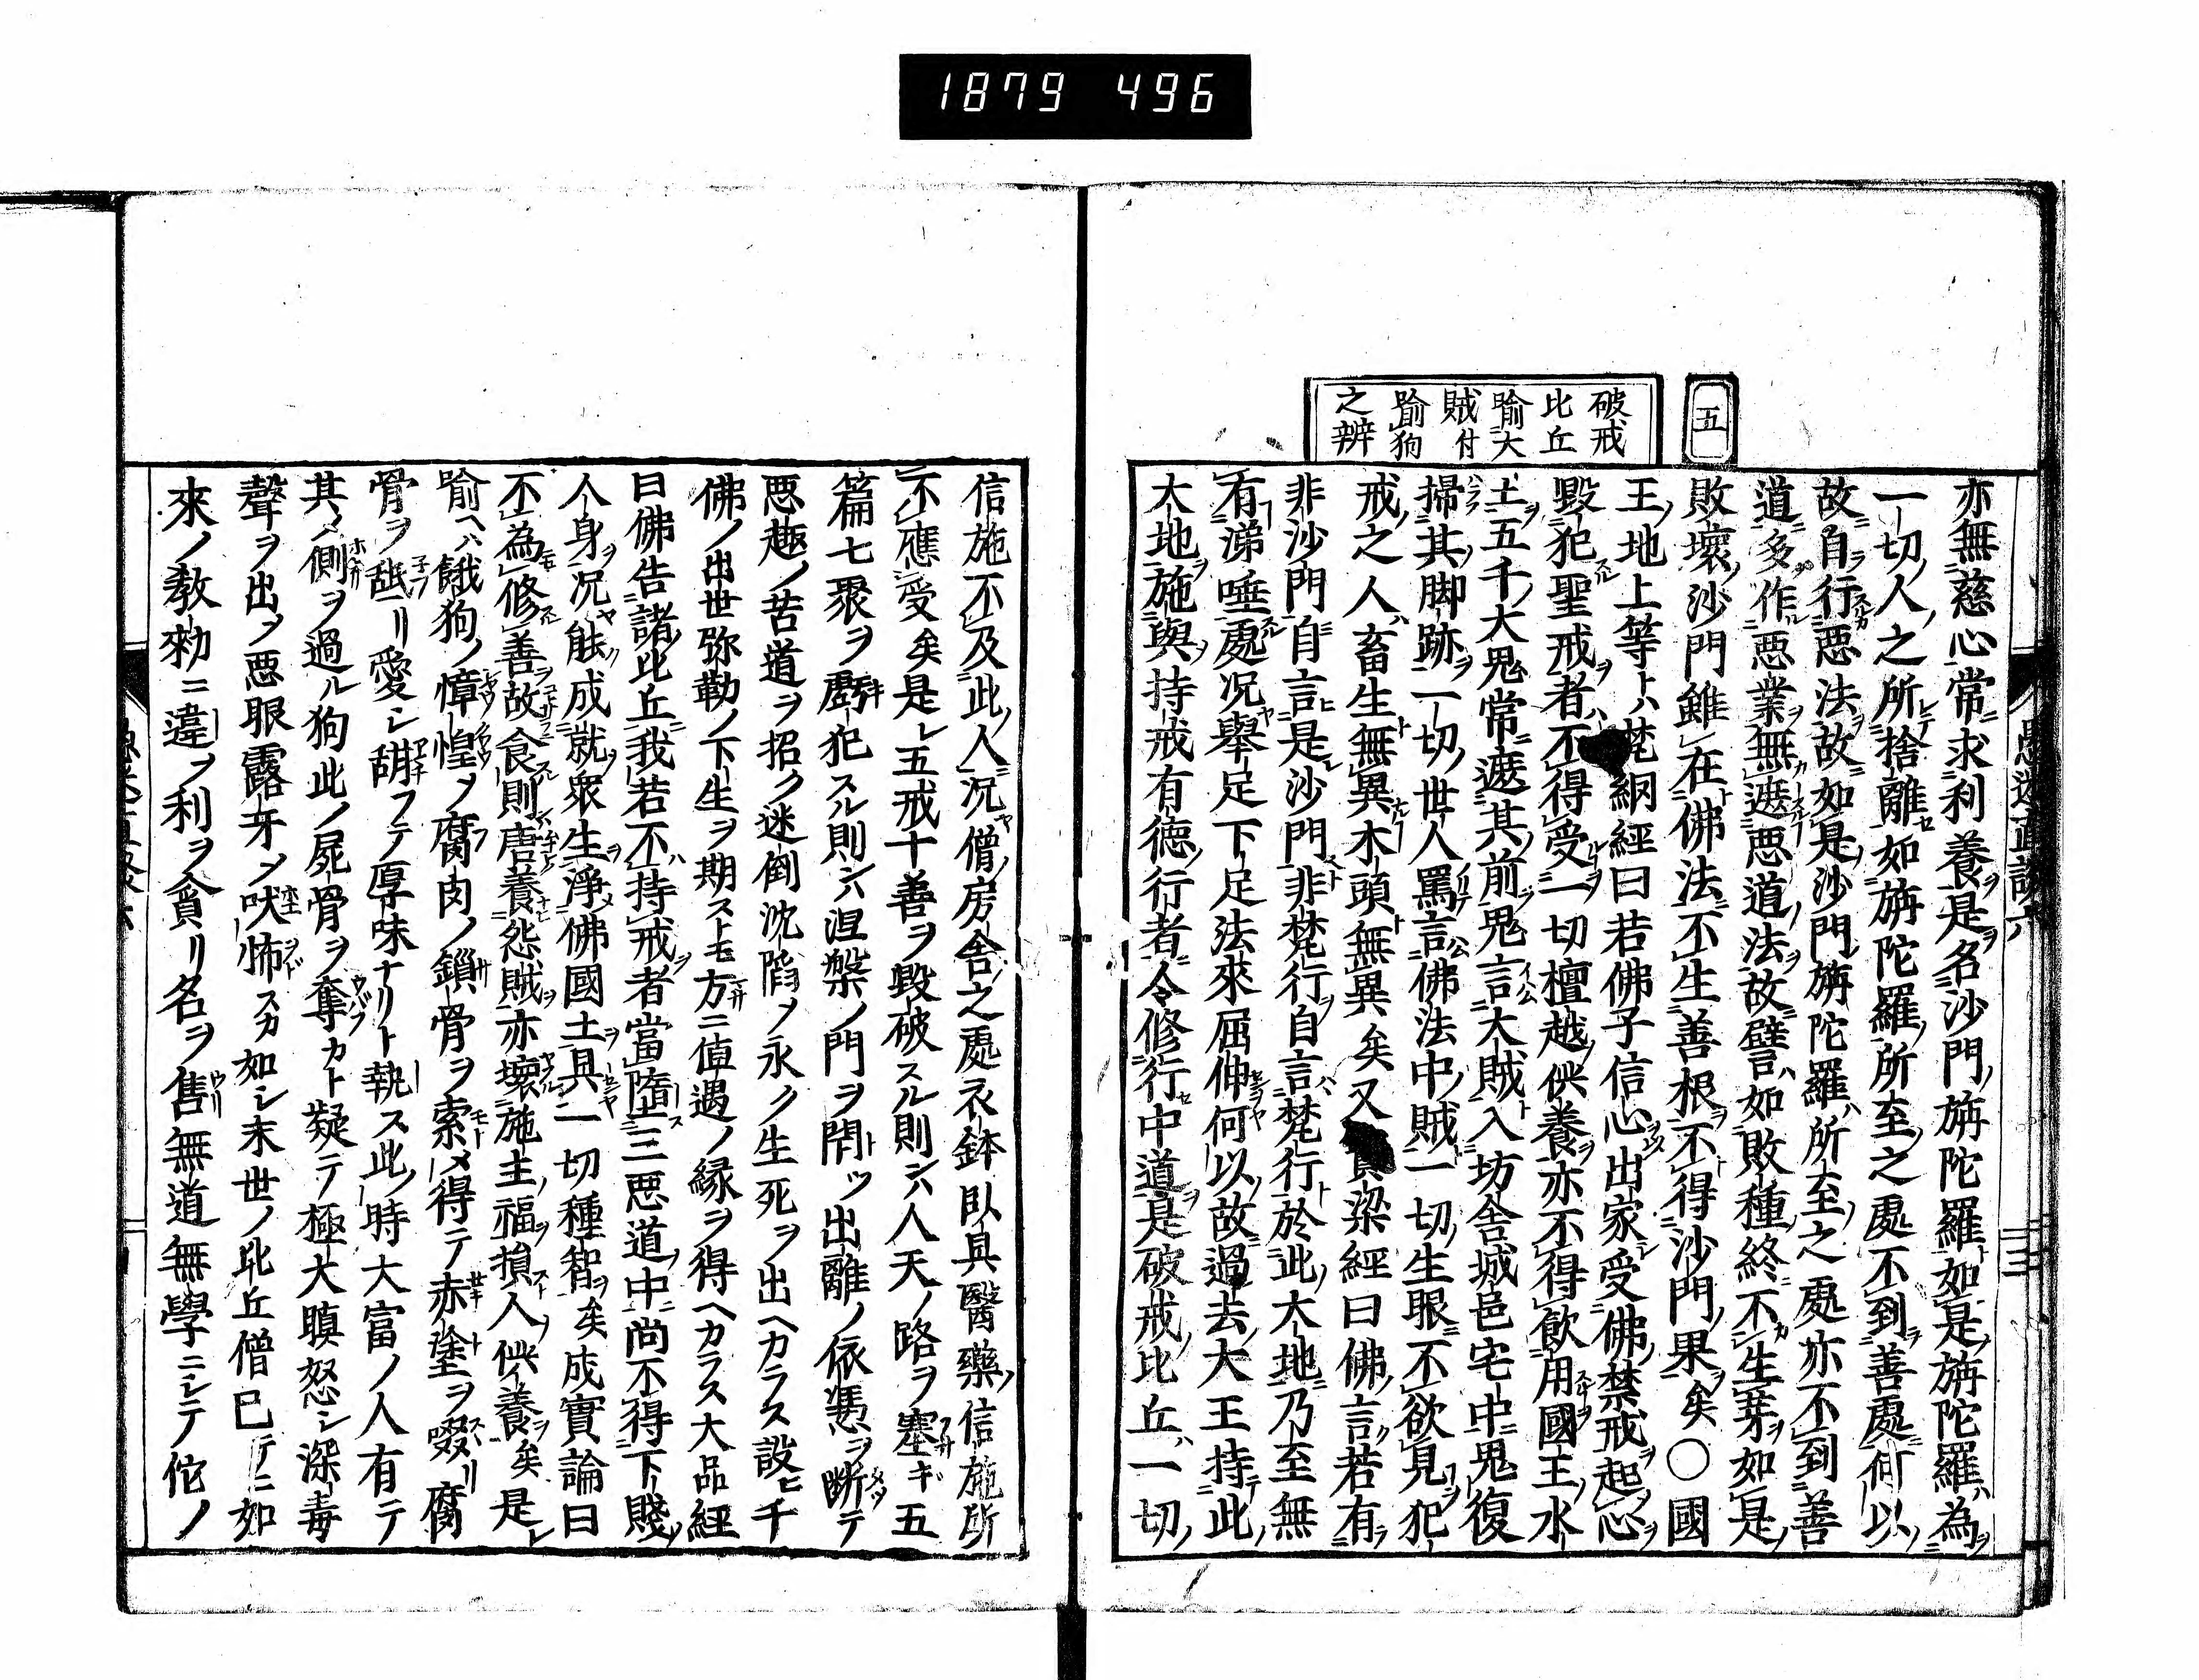 1879 496
五
破戒
比丘
喻大
賊付
喻狗
之辨
亦無慈心常求利養是名沙門旃陀羅如是旃陀羅為
一切人之所捨離如旃陀羅所至之處不到善處何以
故自行惡法故如是沙門旃陀羅所至之處亦不到善
道多作惡業無遮惡道法故譬如敗種終不生芽如是
敗壞沙門雖在佛法不生善根不得沙門果矣○國
王地上等ト梵網經曰若佛子信心出家受佛禁戒起心
毀犯聖戒者不得受一切檀越供養亦不得飲用國王水
土五千大鬼常遮其前鬼言大賊入坊舍城邑宅中鬼復
掃其脚跡一切世人罵言佛法中賊一切生眼不欲見犯
戒之人畜生無異木頭無異矣又梁經曰佛言若有
非沙門自言是沙門非梵行自言梵行於此大地乃至無
有涕唾處况舉足下足法來屈伸何以故過去大王持此
大地施與持戒有德行者令修行中道是破戒比丘一切
信施不及此人况僧房舍之處衣鉢臥具醫藥信施所
不應受矣是レ五戒十善ヲ毀破スル則ンハ人天ノ路ヲ塞ギ五
篇七聚ヲ虧犯スル則ンハ涅槃ノ門ヲ閇ツ出離ノ依憑ヲ断テ
惡趣ノ苦道ヲ招ク迷倒沈陷ノ永ク生死ヲ出ヘカラス設ヒ千
佛ノ出世弥勒ノ下生ヲ期ストモ方ニ値遇ノ縁ヲ得ヘカラス大品經
曰佛告諸比丘我若不持戒者當墮三惡道中尚不得下賤
人身况能成就衆生淨佛國土具一切種智矣成實論曰
不為修善故食則唐養怨賊亦壞施主福損人供養矣是レ
喻ヘハ餓狗ノ慞惶ヲ腐肉ノ鎻骨ヲ索メ得テ赤塗ヲ啜リ腐
骨ヲ舐リ愛シ甜フテ厚味ナリト執ス此時大富ノ人有テ
其ノ側ヲ過ル狗此ノ屍骨ヲ奪カト疑テ極大瞋怒シ深毒
聲ヲ出ノ惡眼露牙ノ吠怖スカ如シ末世ノ比丘僧已テニ如
來ノ教勅ニ違ヲ利ヲ貪リ名ヲ售無道無學ニシテ佗ノ